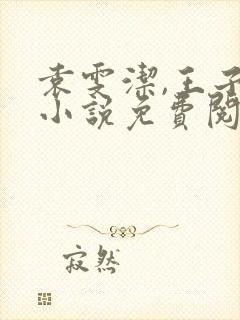 袁雯潔,王子
小說免費閱
寂然